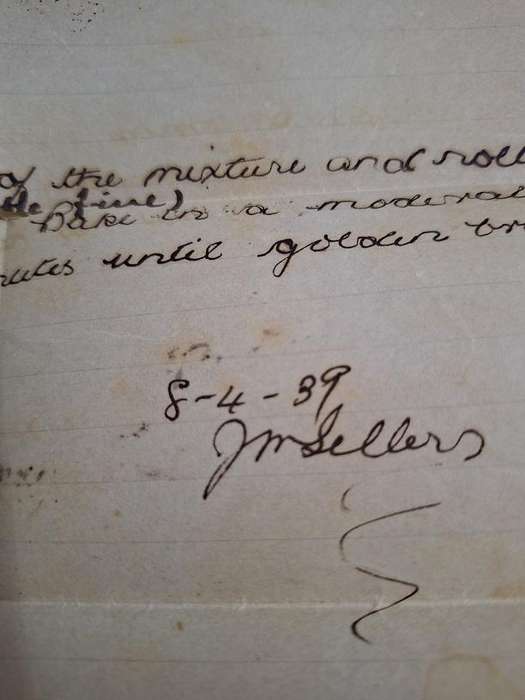 of the mixture and roll
fine)
Bake in a moderat
nutes until golden br
8-4-39
JMSellers